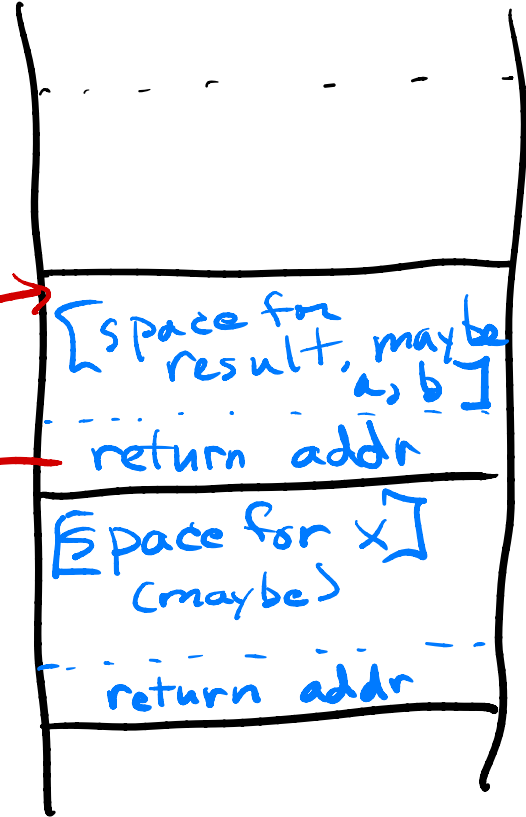 [space for
result, maybe
a, b]
return addr
[space for x]
(maybe)
return addr